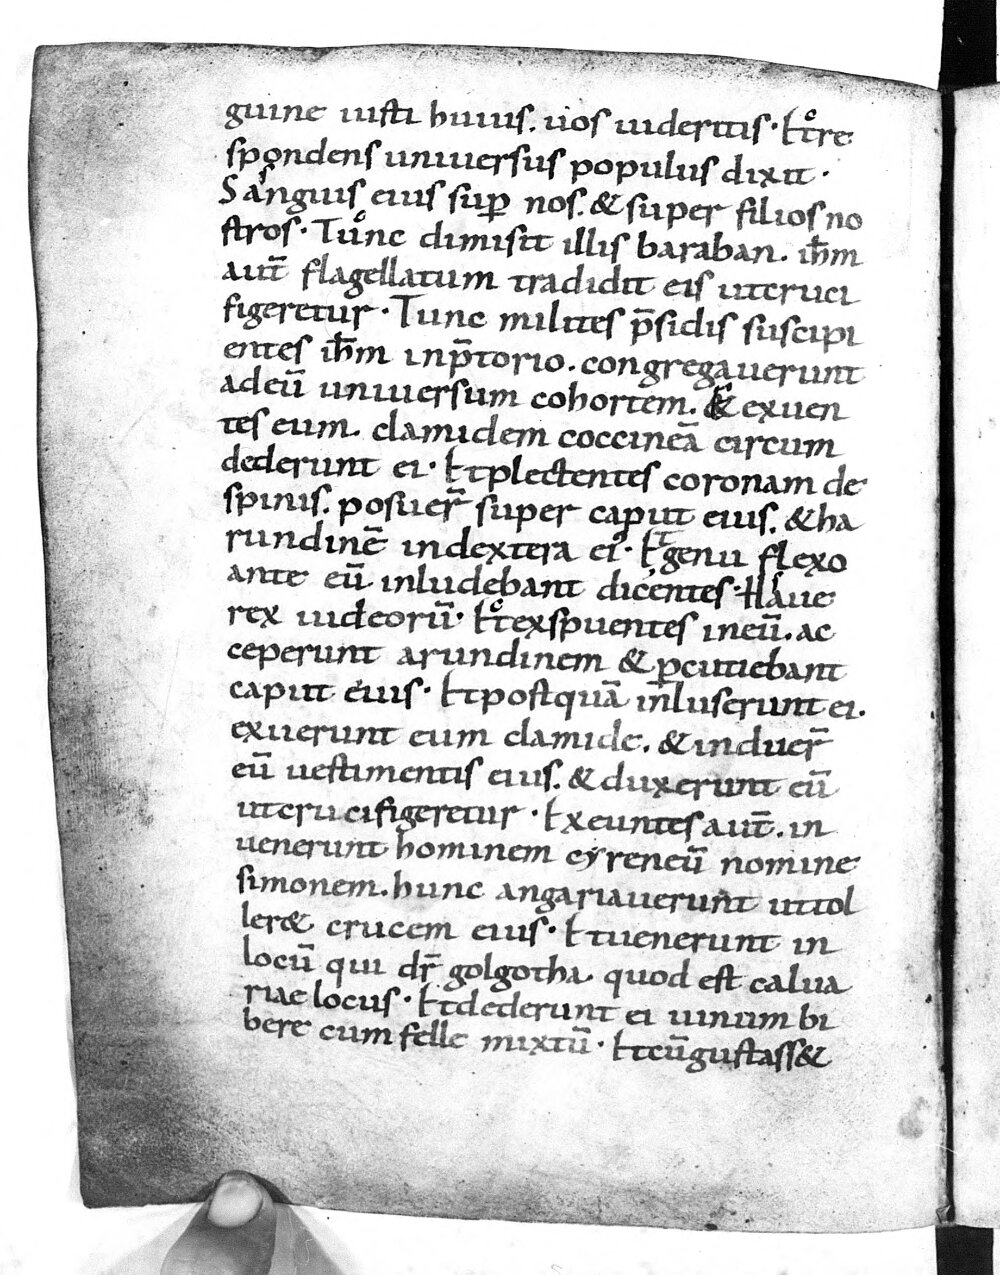 guine iusti huius. uos uideritis · Et re
spondens uniuersus populus dixit ·
Sanguis eius sup̄ nos. & super filios no
stros · Tunc dimisit illis baraban. ih̄m
aut̄ flagellatum tradidit eis utcruci
figeretur · Tunc milites p̄sidis suscipi
entes ih̄m inp̄torio. congregauerunt
adeū uniuersum cohortem. & exuen
tes eum. clamidem coccineā circum
dederunt ei · Et plectentes coronam de
spinis. posuer̄ super caput eius. & ha
rundinē indextera ei · Et genu flexo
ante eū inludebant dicentes · Haue
rex iudeorū · Et exspuentes ineū. ac
ceperunt arundinem & p̄cutiebant
caput eius · Et postquā inluserunt ei.
exuerunt eum clamide. & induer̄
eū uestimentis eius. & duxerunt eū
utcrucifigeretur · Exeuntes aut̄. in
uenerunt hominem cyreneū nomine
simonem. hunc angariauerunt uttol
ler& crucem eius · Et uenerunt in
locū qui dr̄ golgotha quod est calua
riae locus · Et dederunt ei uinum bi
bere cum felle mixtū · Et cū gustass&